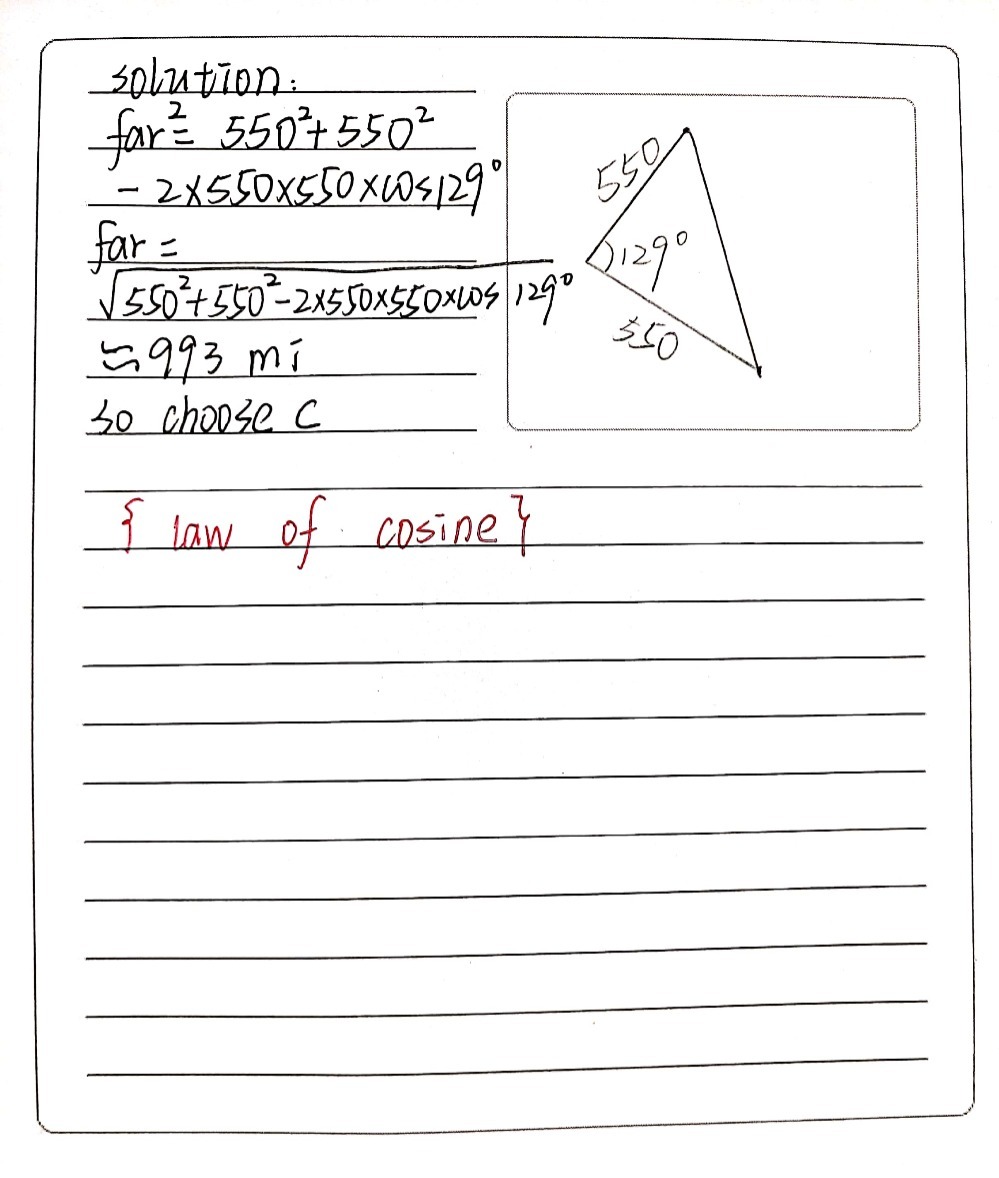 solution:
far² = 550² + 550²
- 2×550×550×cos129°
far =
√550²+550²-2×550×550×cos 129°
≈993 mi
so choose C
550
129°
550
{ law of cosine}